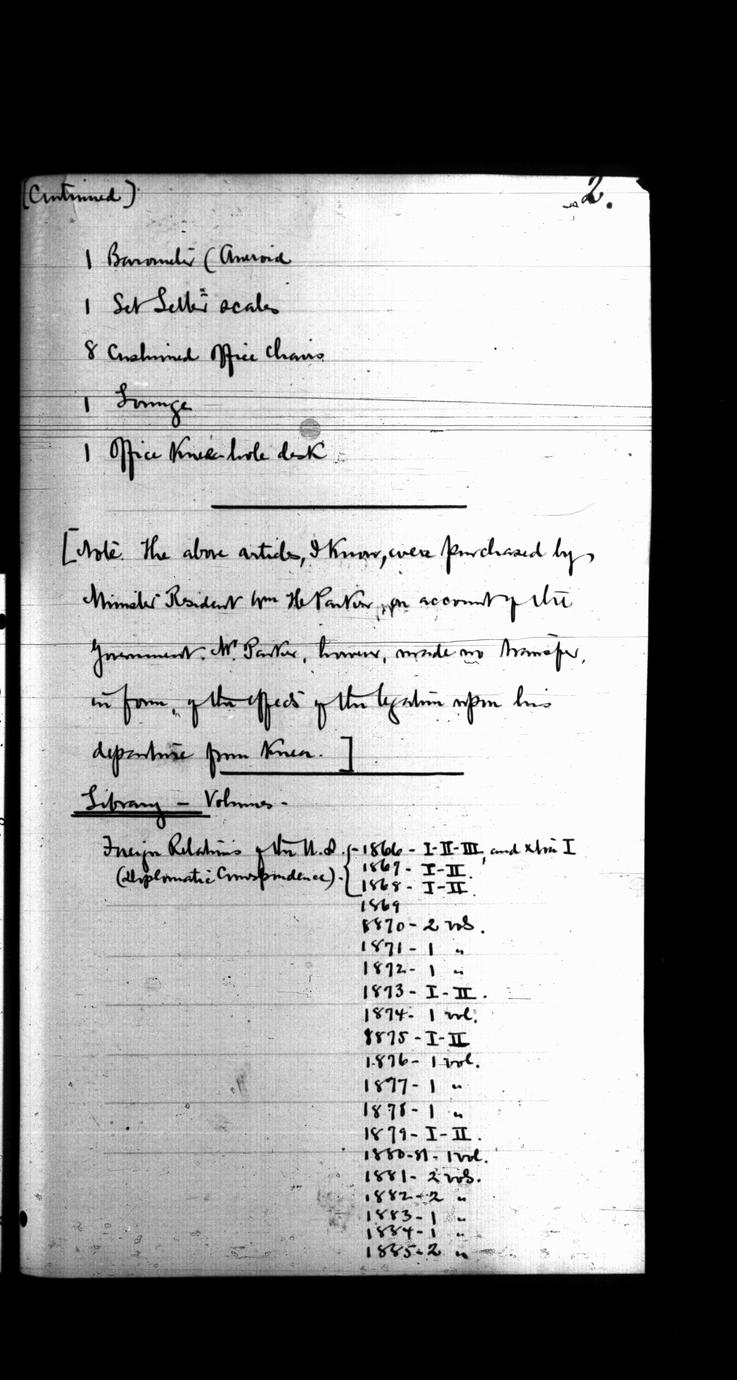 (Continued)
2.
1 Barometer (Aneroid
1 Set Letter scales
8 Cushioned office chairs
1 Lounge
1 Office Knee-hole desk
[Note. The above articles, I know, were purchased by
Minister Resident Wm H. Parker, on account of the
Government. Mr Parker, however, made no transfer,
in form, of the effects of the legation upon his
departure from Korea.]
Library - Volumes -
Foreign Relations of the U.S. - 1866 - I-II-III, and extra I
(Diplomatic Correspondence). 1867 - I-II
1868 - I-II
1869
1870 - 2 vols.
1871 - 1 "
1872 - 1 "
1873 - I-II.
1874 - 1 vol.
1875 - I-II
1876 - 1 vol.
1877 - 1 "
1878 - 1 "
1879 - I-II.
1880-81 - 1 vol.
1881 - 2 vols.
1882 - 2 "
1883 - 1 "
1884 - 1 "
1885 - 2 "